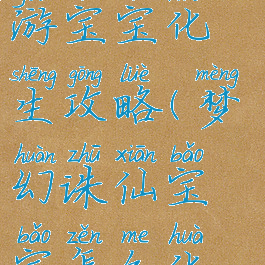 游宝宝化
shēng gōng lüè mèng
生攻略(梦
huàn zhū xiān bǎo
幻诛仙宝
bǎo zěn me huà